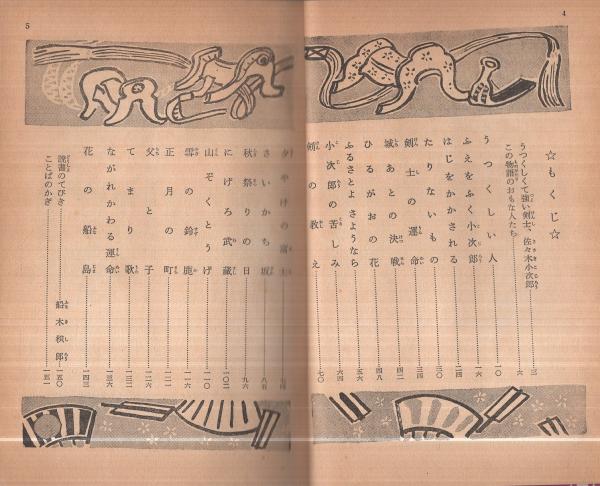 4
☆もくじ☆
うつくしくて強い剣士、佐々木小次郎……三
この物語のおもな人たち……六
うつくしい人……一〇
ふえをふく小次郎……一六
はじをかかされる……二四
たりないもの……三四
剣士の運命……四二
城あとの決戦……四八
ひるがおの花……五六
ふるさとよさようなら……六四
小次郎の苦しみ
剣の教え……七〇
5
夕やけの富士
さいかち坂……八五
秋祭りの日……九六
にげろ武蔵……一〇二
山ぞくとうげ……一一〇
雪の鈴鹿
正月の町
父と子……一二六
てまり歌……一三二
ながれかわる運命……一三六
花の船島……一四三
読書のてびき 船木枳郎……一五〇
ことばのかぎ……一五一